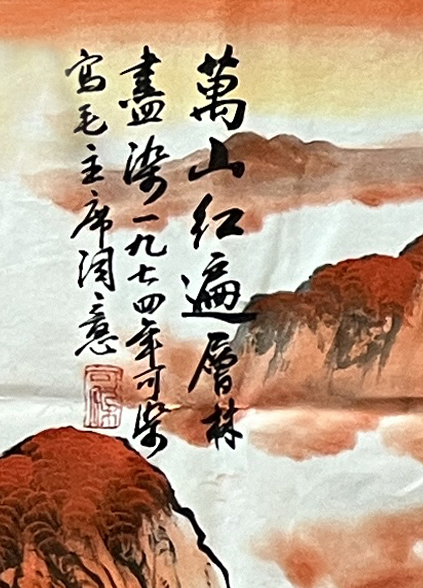 萬山红遍層林
盡染一九七四年可染
寫毛主席词意
可染